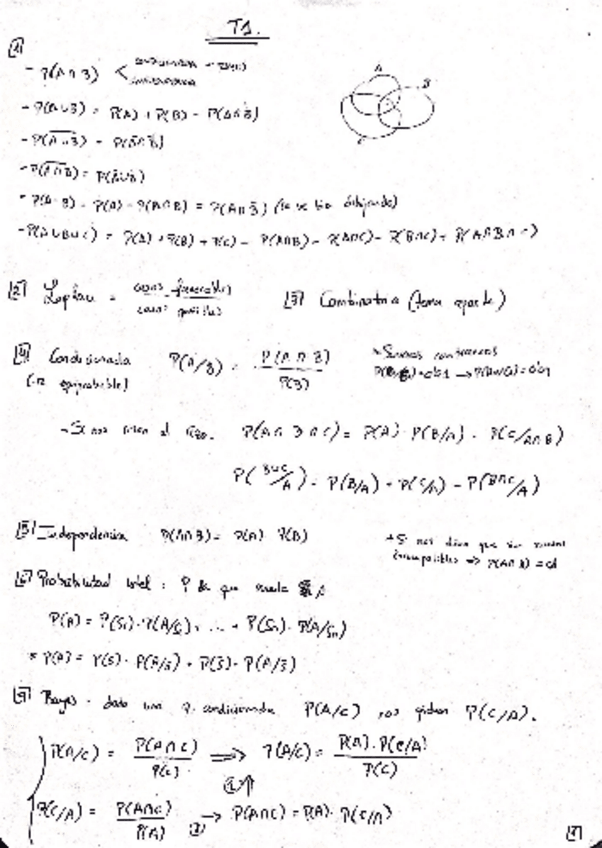 T1.
[1]
- P(A∩B)
A
B
C
- P(A∪B) = P(A) + P(B) - P(A∩B)
- P(A̅∪̅B̅) = P(A̅∩B̅)
- P(A̅∩̅B̅) = P(A̅∪B̅)
- P(A-B) = P(A) - P(A∩B) = P(A∩B̅) (se ve bien dibujando)
- P(A∪B∪C) = P(A) + P(B) + P(C) - P(A∩B) - P(A∩C) - P(B∩C) + P(A∩B∩C)
[2] Laplace = casos favorables / casos posibles
[3] Combinatoria (tema aparte)
[4] Condicionada P(A/B) = P(A∩B) / P(B)
(no equiprobable)
P(A∩B∩C) = P(A) · P(B/A) · P(C/A∩B)
P(B∪C/A) = P(B/A) + P(C/A) - P(B∩C/A)
[5] Independencia P(A∩B) = P(A) · P(B)
* Si nos dicen que son
incompatibles ⇒ P(A∩B) = ∅
[6] Probabilidad total: P de que suceda A
P(A) = P(S₁) · P(A/S₁) + ... + P(Sₙ) · P(A/Sₙ)
= P(A) = P(S) · P(A/S) + P(S̅) · P(A/S̅)
[7] Bayes - dada una p. condicionada P(A/C) nos piden P(C/A).
P(A/C) = P(A∩C) / P(C) ⟹ P(A/C) = P(A) · P(C/A) / P(C)
P(C/A) = P(A∩C) / P(A) → P(A∩C) = P(A) · P(C/A)
[1]